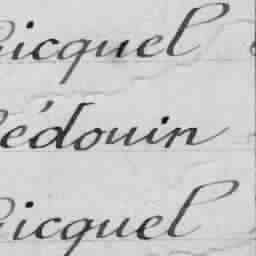 Gicquel
Bédouin
Gicquel